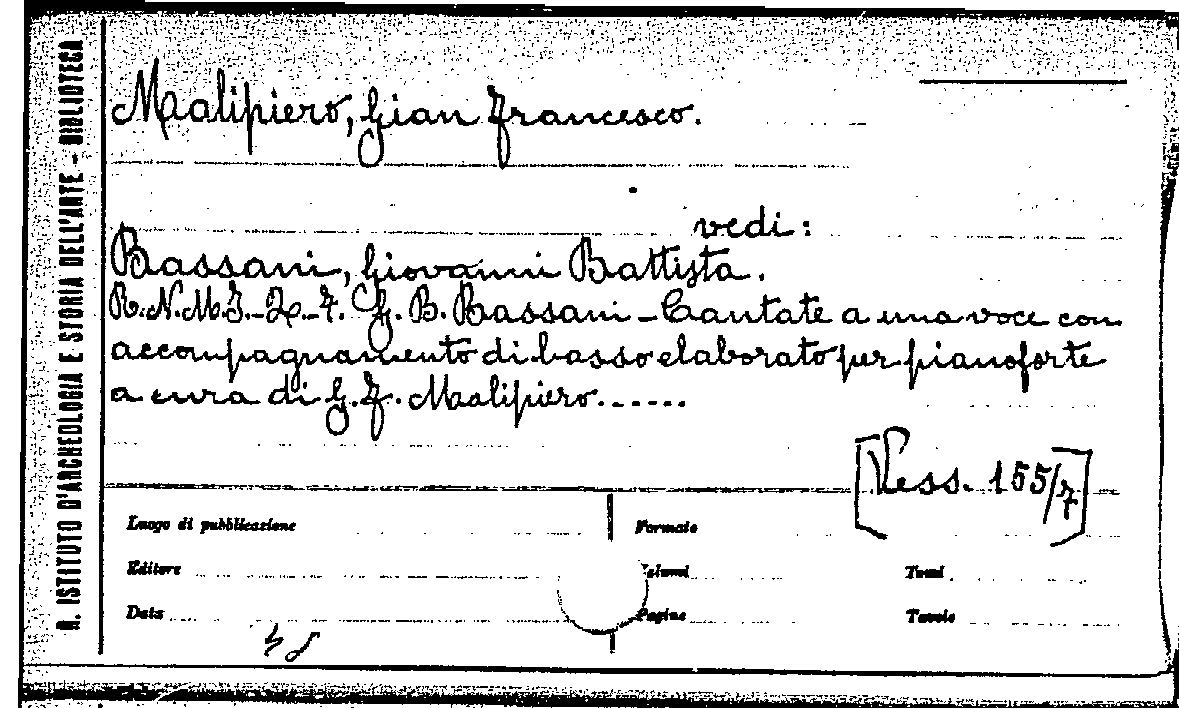 R. ISTITUTO D'ARCHEOLOGIA E STORIA DELL'ARTE - BIBLIOTECA
Malipiero, Gian Francesco.
vedi:
Bassani, Giovanni Battista.
R.N.M.I.-2.-7. G. B. Bassani - Cantate a una voce con
accompagnamento di basso elaborato per pianoforte
a cura di G.F. Malipiero......
[Vess. 155/7]
Luogo di pubblicazione Formato
Editore Volumi Tomi
Data Pagine Tavole